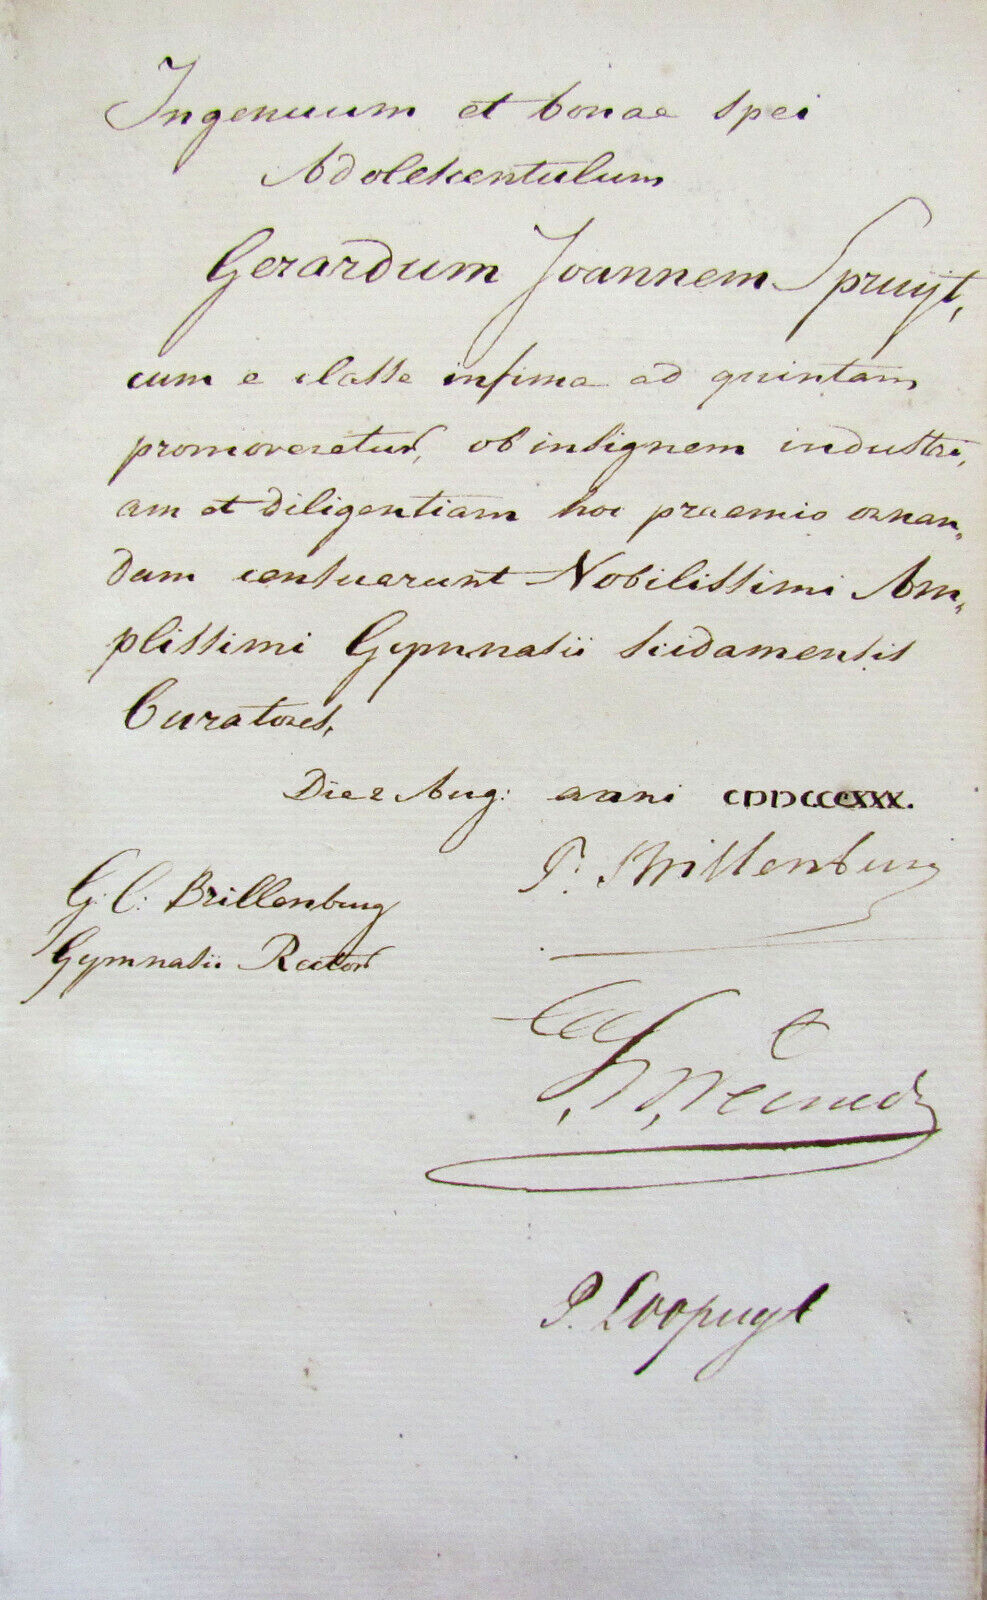 Ingenuum et bonae spei
Adolescentulum
Gerardum Joannem Spruijt,
cum e classe infima ad quintam
promoveretur, ob insignem industri-
am et diligentiam hoc praemio ornan-
dum censuerunt Nobilissimi Am-
plissimi Gymnasii Scidamensis
Curatores.
Die 2 Aug: anni CIↃIↃCCCXXX.
G: C: Brillenburg
Gymnasii Rector
P. Loopuyt